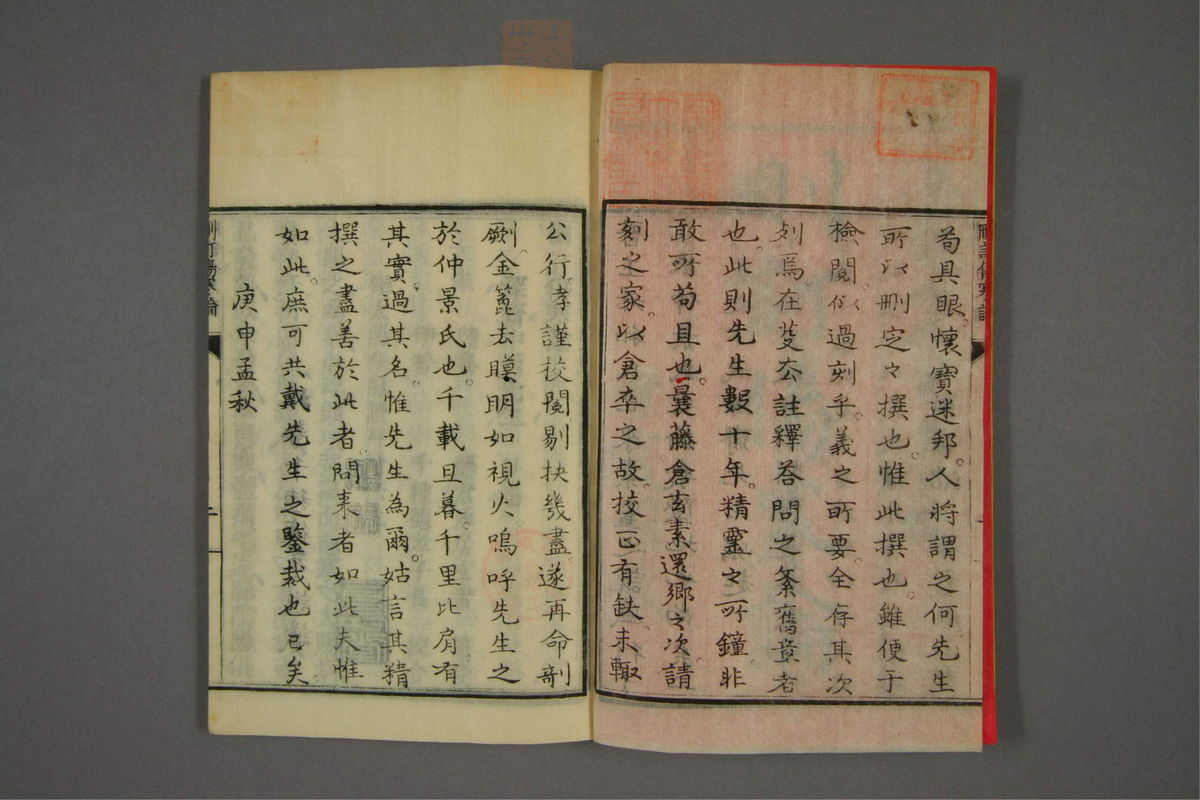 刪訂傷寒論
苟具眼。懷寶迷邦。人將謂之何。先生
所以刪定之撰也。惟此撰也。雖便于
檢閱。似過刻乎。義之所要。全存其次
列焉。在芟去註釋荅問之紊舊章者
也。此則先生數十年。精靈之所鐘。非
敢所苟且也。曩藤倉玄素還鄉之次。請
刻之家。以倉卒之故。挍正有缺。未輙
公行。孝謹挍閱剔抉幾盡。遂再命剞
劂。金篦去瞙。明如視火。嗚呼先生之
於仲景氏也。千載旦暮。千里比肩。有
其實。過其名。惟先生為爾。姑言其精
撰之盡善於此者。問来者如此夫。惟
如此。庶可共戴先生之鑒裁也已矣
庚申孟秋
刪訂傷寒論
二